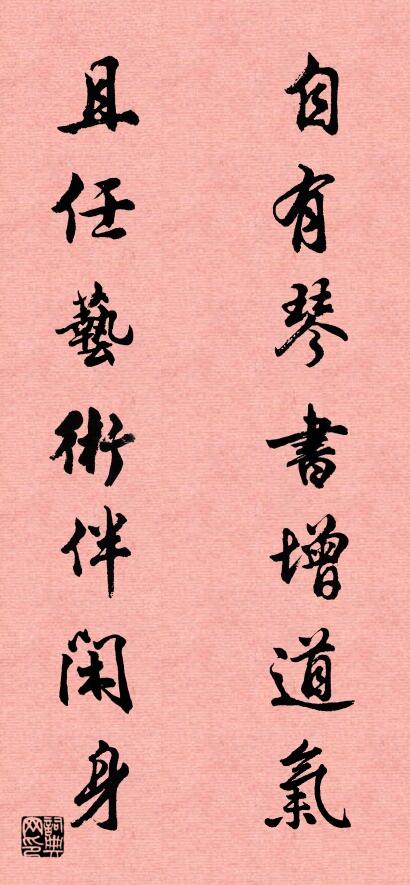 自有琴書增道氣
且任藝術伴閑身
詞典网印